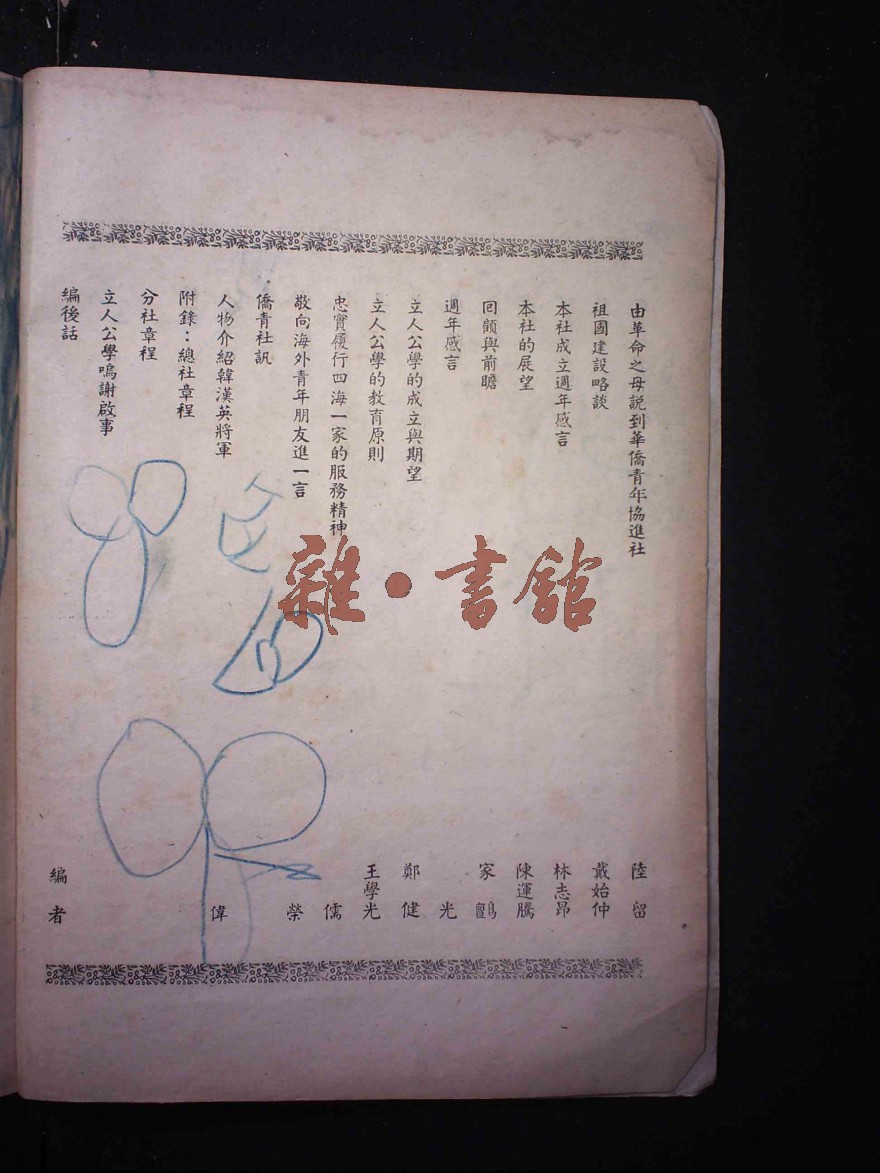 由革命之母說到華僑青年協進社 陸留
祖國建設略談 戴始仲
本社成立週年感言 林志昂
本社的展望 陳運騰
回顧與前瞻 家鷗
週年感言 光
立人公學的成立與期望 鄭健
立人公學的教育原則 王學光
忠實履行四海一家的服務精神 儒
敬向海外青年朋友進一言 榮
僑青社訊
人物介紹韓漢英將軍 偉
附錄：總社章程
分社章程
立人公學鳴謝啟事
編後話 編者
雜·書館